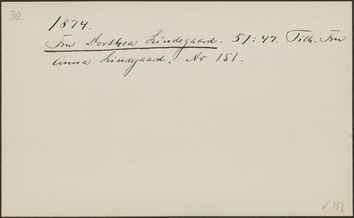 30.
1874.
Fru Dorthea Lindegaard. 51:47. Tilh. Fru
Anna Lindegaard. No 151.
✓ 151